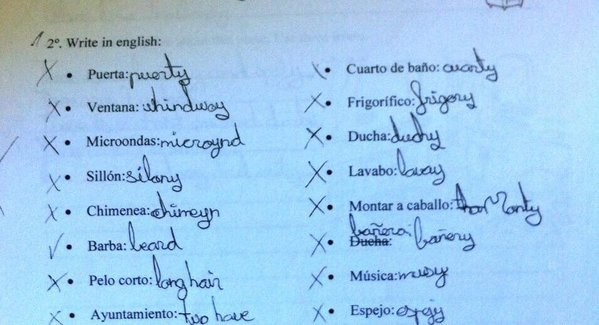 2º. Write in english:
Puerta: puerty
Ventana: whindway
Microondas: microynd
Sillón: silony
Chimenea: chimeyn
Barba: beard
Pelo corto: long hair
Ayuntamiento: two have
Cuarto de baño: cuarty
Frigorífico: frigory
Ducha: duchy
Lavabo: lavay
Montar a caballo:
bañera:
Ducha: bañery
Música: musy
Espejo: espejy